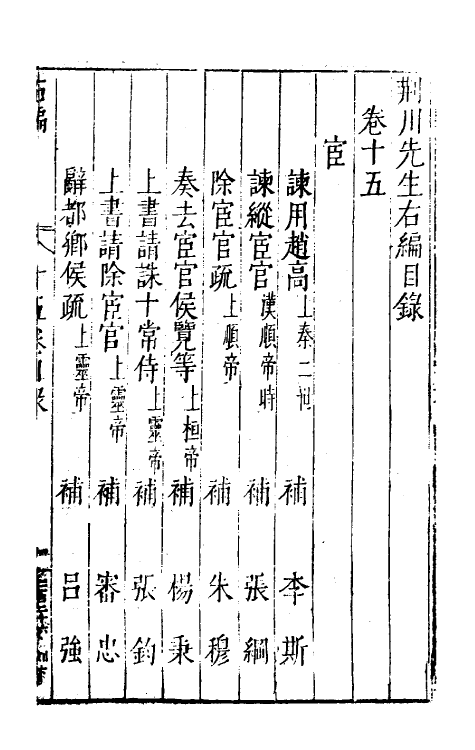 荆川先生右編目錄
卷十五
宦
諫用趙高 上秦二世 補 李斯
諫縱宦官 漢順帝時 補 張綱
除宦官疏 上順帝 補 朱穆
奏去宦官侯覽等 上桓帝 補 楊秉
上書請誅十常侍 上靈帝 補 張鈞
上書請除宦官 上靈帝 補 審忠
辭都鄉侯疏 上靈帝 補 呂強
右編
十五卷目録